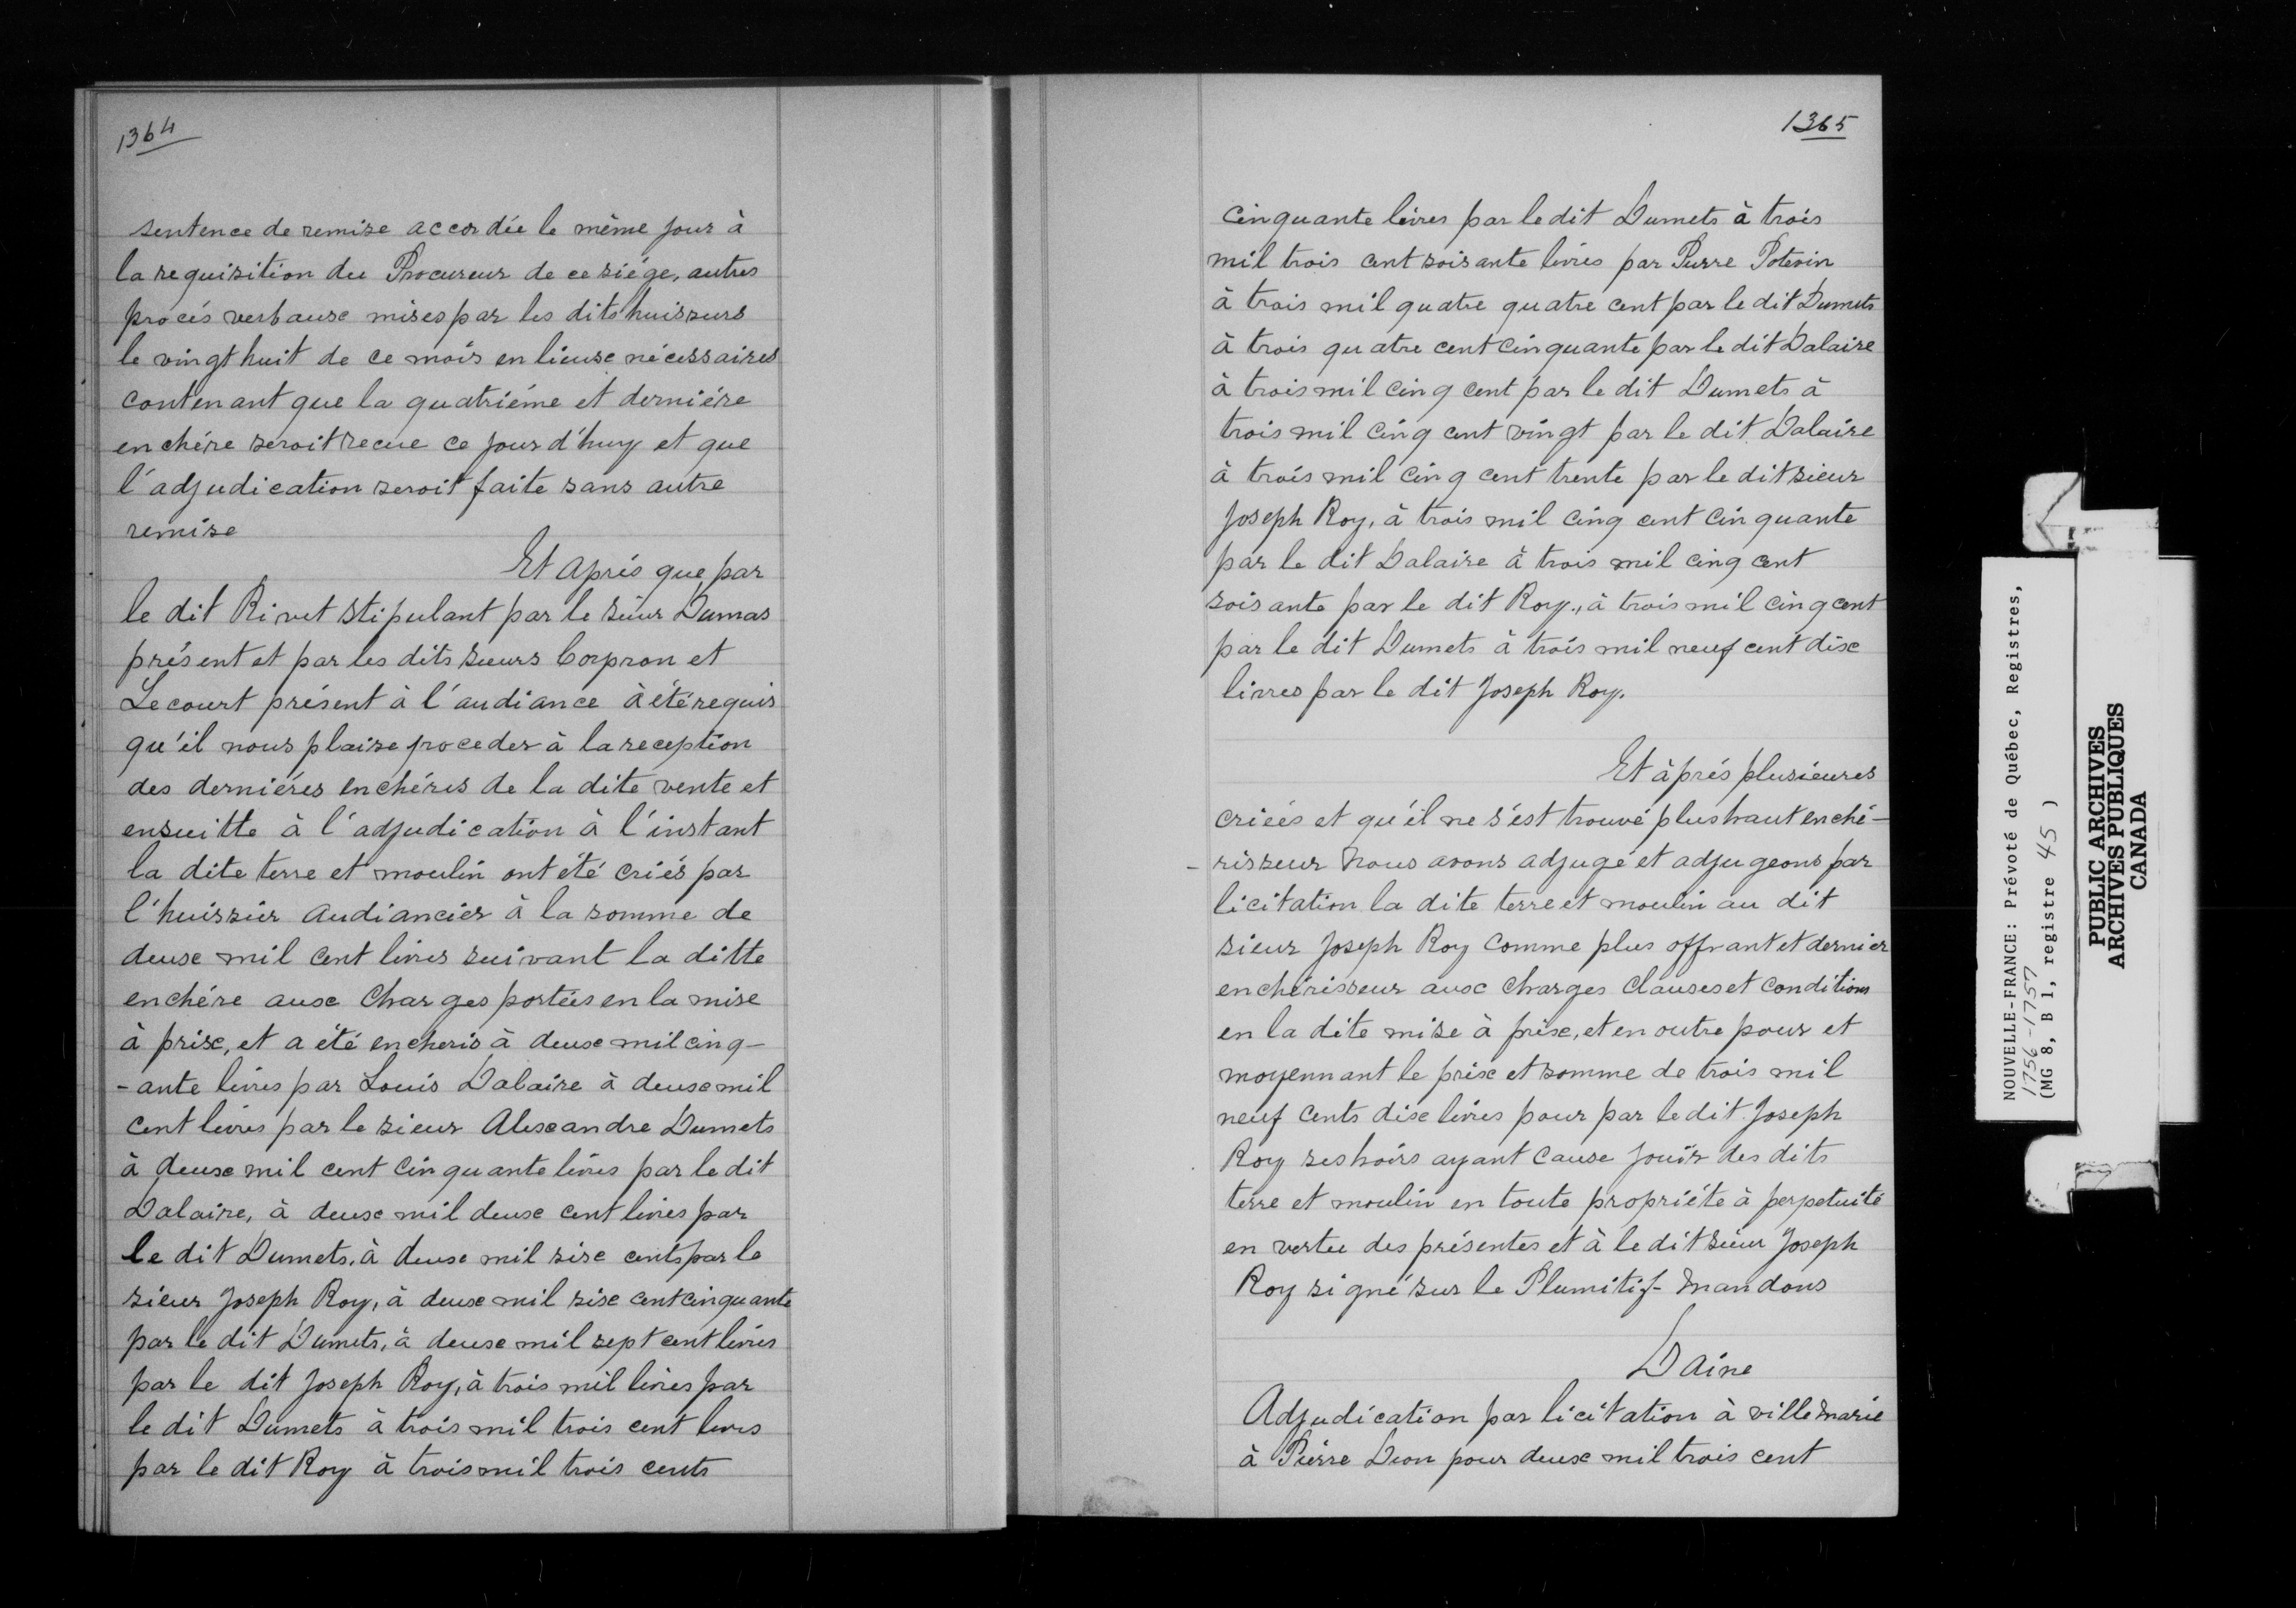 1364
sentence de remise accordée le même jour à
la requisition du Procureur de ce siége, autres
procés verbaux mises par les dits huisseurs
le vingt huit de ce mois en lieux nécessaires
contenant que la quatriéme et derniére
enchére seroit recue ce jour d'huy et que
l'adjudication seroit faite sans autre
remise
Et aprés que par
le dit Rivet stipulant par le sieur Dumas
présent et par les dits sieurs Corpron et
Lecourt présent à l'audiance à été requis
qu'il nous plaise proceder à la reception
des derniéres enchéres de la dite vente et
ensuitte à l'adjudication à l'instant
la dite terre et moulin ont été criés par
l'huissier audiancier à la somme de
deux mil cent livres suivant la ditte
enchére aux charges portées en la mise
à prix, et a été encheris à deux mil cinq-
-ante livres par Louis Dalaire à deux mil
cent livres par le sieur Alexandre Dumets
à deux mil cent cinquante livres par le dit
Dalaire, à deux mil deux cent livres par
le dit Dumets, à deux mil six cents par le
sieur Joseph Roy, à deux mil six cent cinquante
par le dit Dumets, à deux mil sept cent livres
par le dit Joseph Roy, à trois mil livres par
le dit Dumets à trois mil trois cent livres
par le dit Roy à trois mil trois cents
1365
cinquante livres par le dit Dumets à trois
mil trois cent soixante livres par Pierre Potevin
à trois mil quatre quatre cent par le dit Dumets
à trois quatre cent cinquante par le dit Dalaire
à trois mil cinq cent par le dit Dumets à
trois mil cinq cent vingt par le dit Dalaire
à trois mil cinq cent trente par le dit sieur
Joseph Roy, à trois mil cinq cent cinquante
par le dit Dalaire à trois mil cinq cent
soixante par le dit Roy., à trois mil cinq cent
par le dit Dumets à trois mil neuf cent dix
livres par le dit Joseph Roy.
Et àprés plusieures
criées et qu'il ne s'est trouvé plus haut enché-
-risseur Nous avons adjugé et adjugeons par
licitation la dite terre et moulin au dit
sieur Joseph Roy comme plus offrant et dernier
enchérisseur aux charges clauses et conditions
en la dite mise à prix, et en outre pour et
moyennant le prix et somme de trois mil
neuf cents dix livres pour par le dit Joseph
Roy ses hoirs ayant cause jouir des dits
terre et moulin en toute propriéte à perpetuité
en vertu des présentes et à le dit sieur Joseph
Roy signé sur le Plumitif- Mandons
Daine
Adjudication par licitation à ville Marie
à Pierre Dion pour deux mil trois cent
NOUVELLE-FRANCE: Prévoté de Québec, Registres,
1756-1757
(MG 8, B 1, registre 45)
PUBLIC ARCHIVES
ARCHIVES PUBLIQUES
CANADA